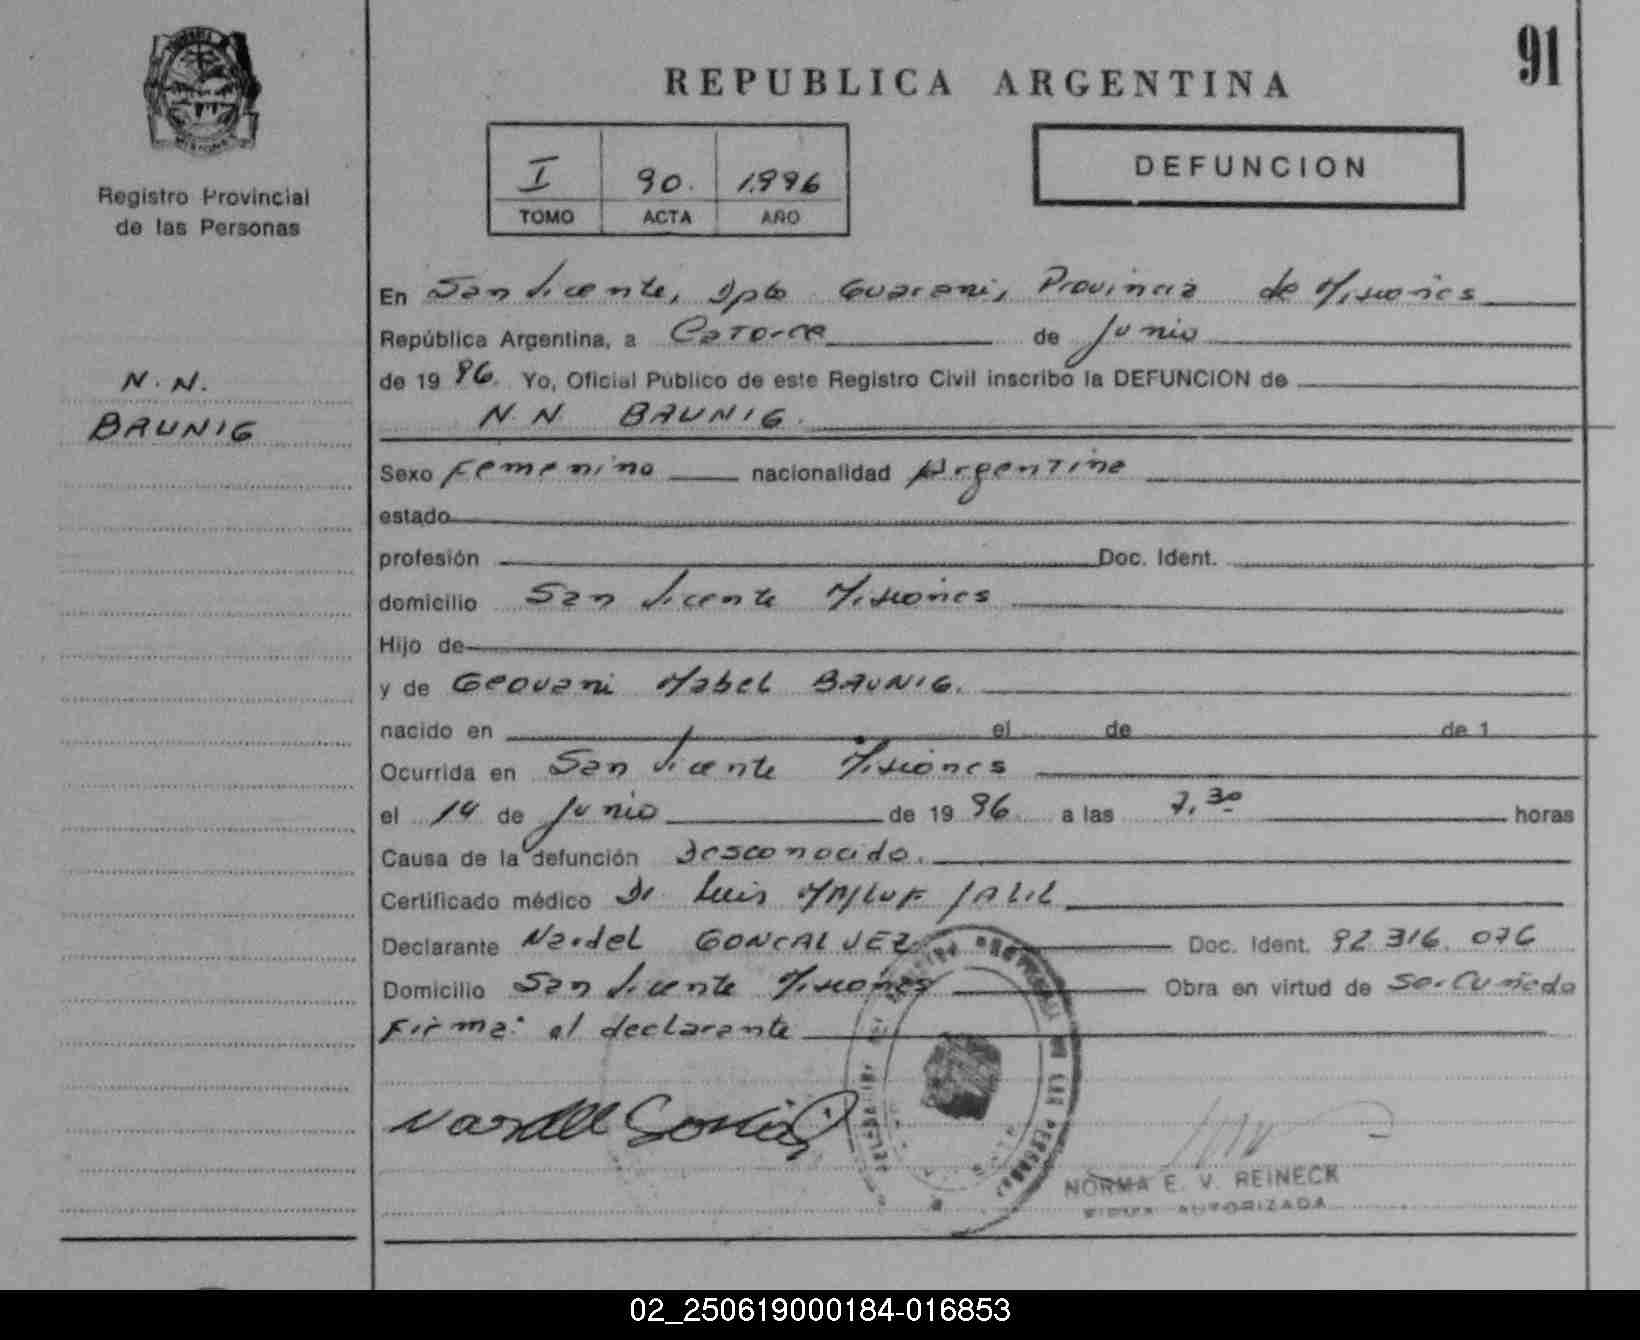 91
REPUBLICA ARGENTINA
Registro Provincial
de las Personas
I 90. 1.996
TOMO ACTA AÑO
DEFUNCION
N.N.
BAUNIG
En San Vicente, Dpto Guarani, Provincia de Misiones
República Argentina, a Catorce de Junio
de 19 96. Yo, Oficial Público de este Registro Civil inscribo la DEFUNCION de
N.N BAUNIG.
Sexo Femenino nacionalidad Argentina
estado
profesión Doc. Ident.
domicilio San Vicente Misiones
Hijo de
y de Geovani Mabel BAUNIG.
nacido en el de de 1
Ocurrida en San Vicente Misiones
el 14 de Junio de 19 96. a las 7,30 horas
Causa de la defunción Desconocido.
Certificado médico Dr Luis MAJLUF JALIL
Declarante Nardel GONCALVEZ Doc. Ident. 92.316.076
Domicilio San Vicente Misiones Obra en virtud de Ser Cuñado
Firma: el declarante
NORMA E. V. REINECK
FIRMA AUTORIZADA
02_250619000184-016853